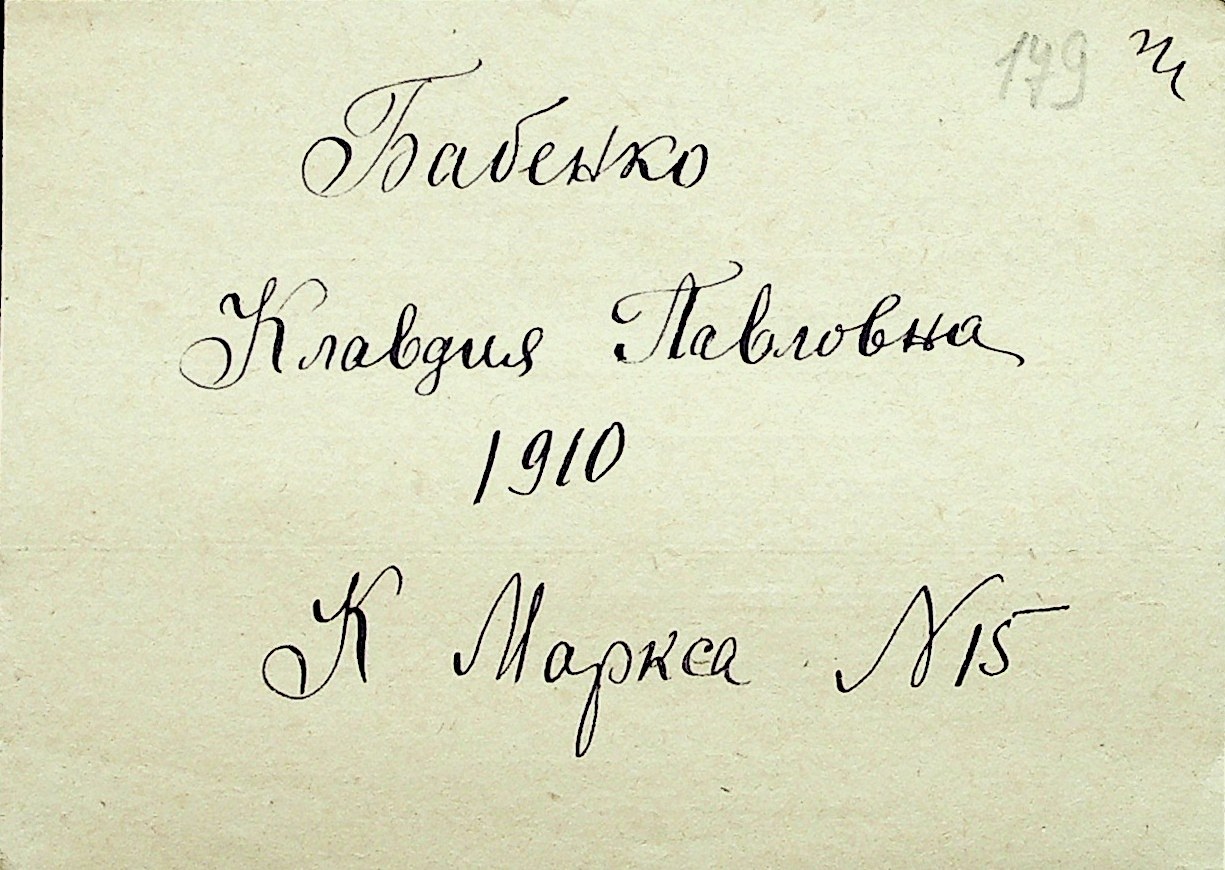 179
Бабенко
Клавдия Павловна
1910
К Маркса N 15